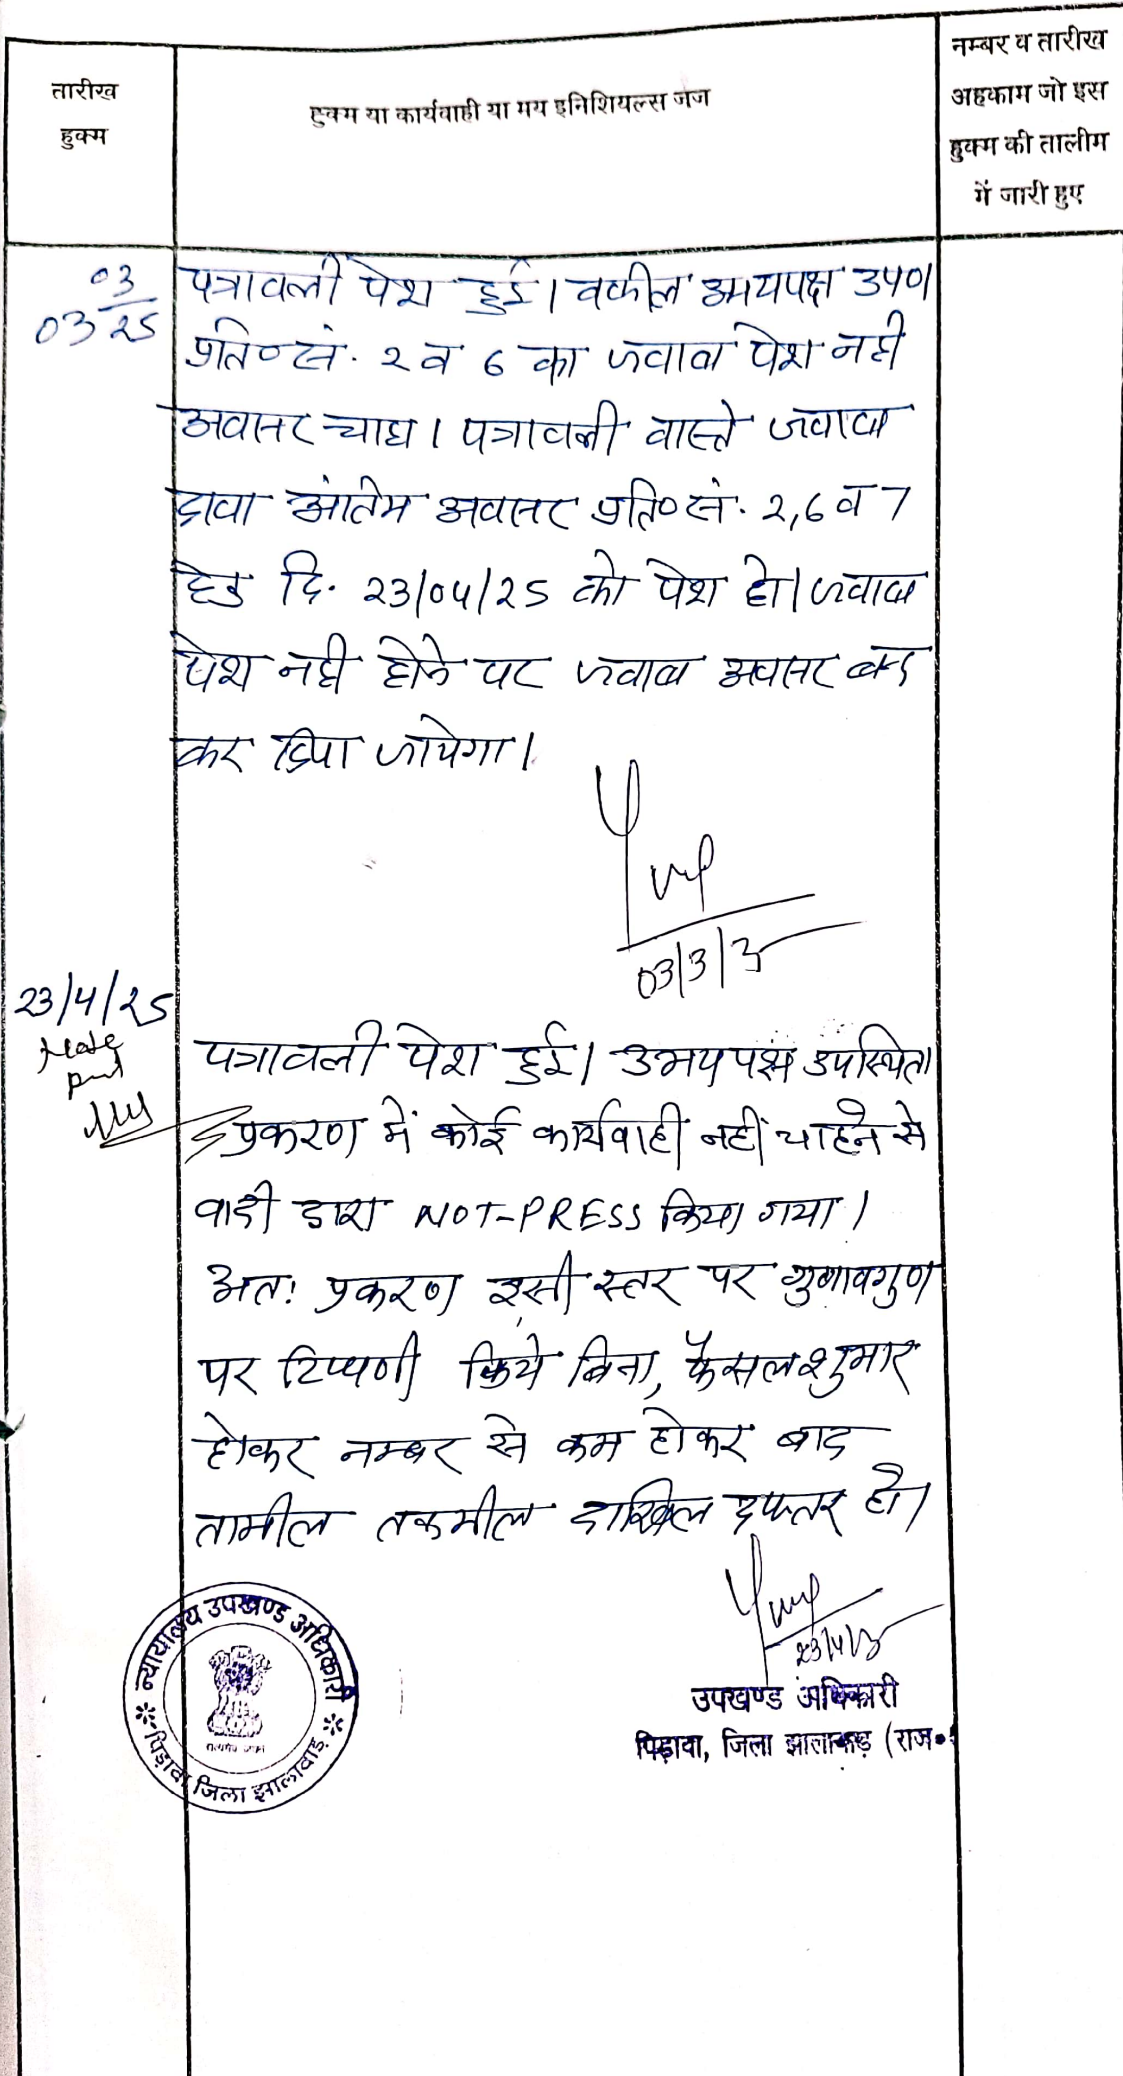 तारीख
हुक्म
हुक्म या कार्यवाही या मय इनिशियल्स जज
नम्बर व तारीख
अहकाम जो इस
हुक्म की तालीम
में जारी हुए
03
03/25
पत्रावली पेश हुई। वकील उभयपक्ष उप०।
प्रति०सं. 2 व 6 का जवाब पेश नही
अवासर चाहा। पत्रावली वास्ते जवाब
दावा अंतिम अवासर प्रति०सं. 2,6 व 7
हेतु दि. 23/04/25 को पेश हो। जवाब
पेश नही होने पर जवाब अवसर बन्द
कर दिया जायेगा।
03/3/25
23/4/25
पत्रावली पेश हुई। उभयपक्ष उपस्थित।
प्रकरण में कोई कार्यवाही नहीं चाहने से
वादी द्वारा NOT-PRESS किया गया।
अतः प्रकरण इसी स्तर पर गुणावगुण
पर टिप्पणी किये बिना, फैसलशुमार
होकर नम्बर से कम होकर बाद
तामील तकमील दाखिल दफ्तर हो।
23/4/25
उपखण्ड अधिकारी
पिड़ावा, जिला झालावाड़ (राज०)
न्यायालय उपखण्ड अधिकारी
पिड़ावा जिला झालावाड़
सत्यमेव जयते